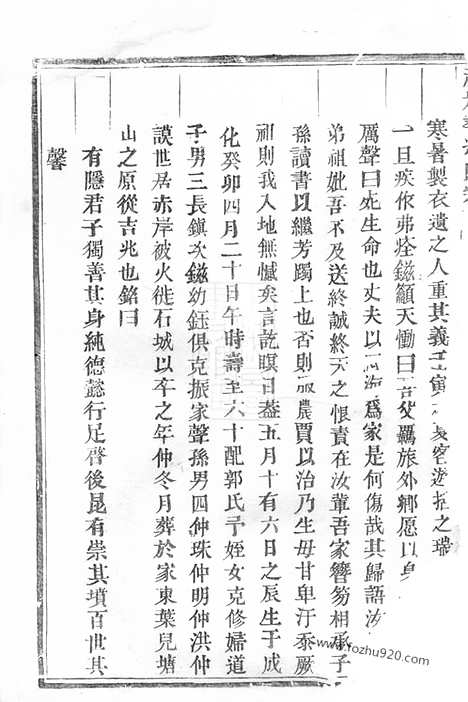 寒暑製衣遺之人重其義壬寅長客遊抵之瑞
一旦疾作弗痊鎡籲天慟曰吾父羈旅外鄉愿以身
厲聲曰死生命也丈夫以四海爲家是何傷哉其歸語汝
弟祖妣吾不及送終誠終天之恨責在汝輩吾家簪笏相承子
孫讀書以繼芳躅上也否則服農賈以治乃生毋甘卑汙忝厥
祖則我入地無憾矣言訖暝目蓋五月十有六日之辰生于成
化癸卯四月二十日午時壽至六十配郭氏予姪女克修婦道
子男三長鎮次鎡幼鈺俱克振家聲孫男四仲珠仲明仲洪仲
謨世居赤岸被火徙石城以卒之年仲冬月葬於家東葉兒塘
山之原從吉兆也銘曰
有隱君子獨善其身純德懿行足啓後昆有崇其墳百世其
馨
www.fozhu920.com